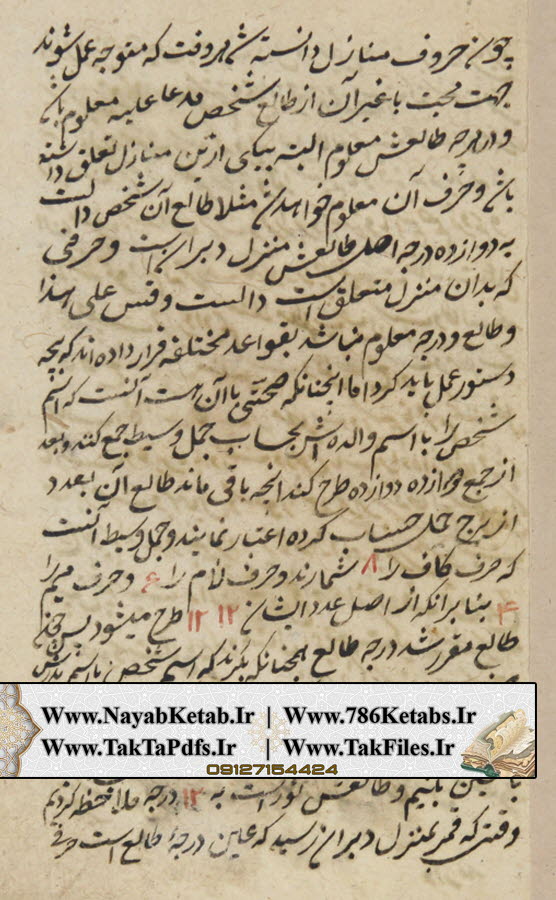 چون حروف منازل دانسته شد هر وقت که متوجه عمل شوند
جهت محبت یا غیر آن از طالع شخص مدعا علیه معلوم باشد
و در هر درجه طالعش معلوم البته بیکی ازین منازل تعلق داشته
باشد و حرف آن معلوم خواهد شد مثلا طالع آن شخص
به دوازده درجه اصل طالعش منزل دبران است و حرفی
که بدان منزل متعلق است دالست وقس علی هذا
و طالع و درجه معلوم نباشد بقواعد مختلفه قرار داده اند که بچه
دستور عمل باید کرد اما آنچنانکه صحتی با آن هست آنست که اسم
شخص را با اسم والده اش بحساب جمل وسیط جمع کنند و بعد
از جمع دوازده دوازده طرح کند آنچه باقی ماند طالع آن بعدد
از برج حمل حساب کرده اعتبار نمایند و جمل وسیط آنست
که حرف کاف را ۸ شمارند و حرف لام را ۶ و حرف میم را
۴ بنا بر آنکه از اصل عدد ایشان ۱۲ ۱۲ طرح میشود پس
طالع مقرر شد درجه طالع همچنانکه که اسم شخص با اسم
Www.NayabKetab.Ir | Www.786Ketabs.Ir
Www.TakTaPdfs.Ir | Www.TakFiles.Ir
09127154424
و طالعش ثور است به ۱۲ درجه ملاحظه کردیم
وقتی که قمر بمنزل دبران رسید که عین درجه طالع است